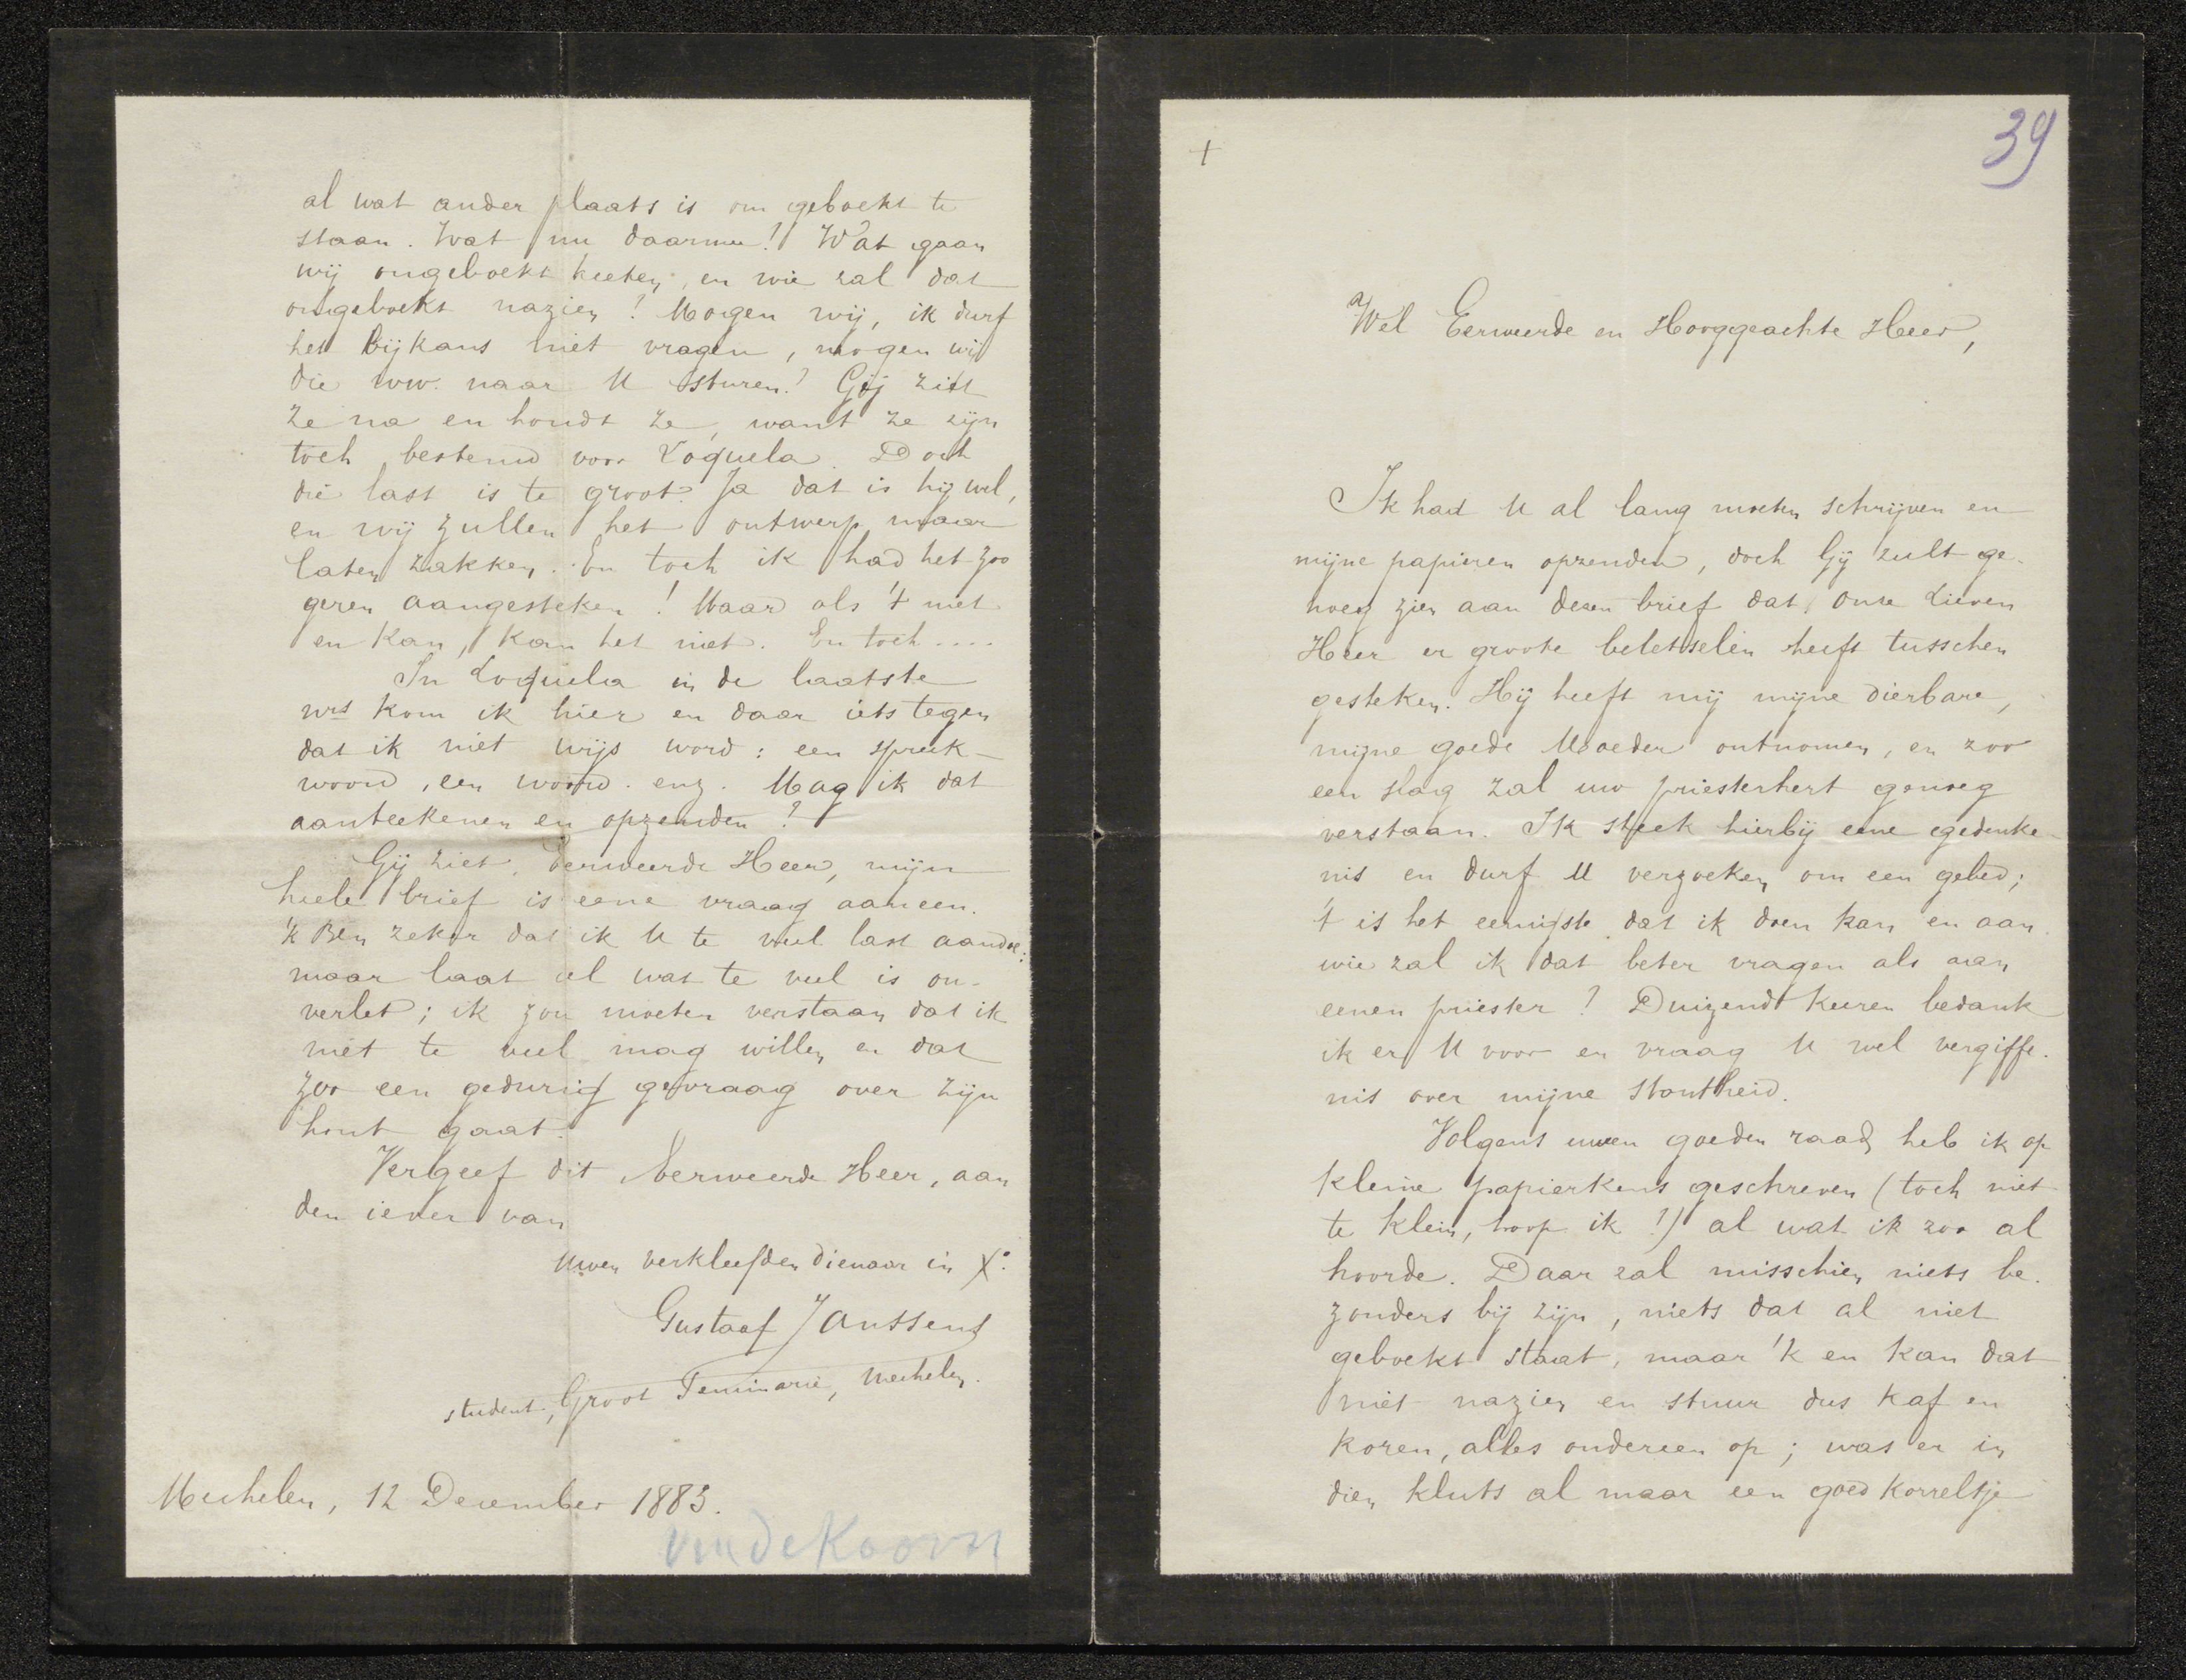 +
39
Wel Eerweerde en Hooggeachte Heer,
Ik had U al lang moeten schrijven en
mijne papieren opzenden, doch Gij zult ge-
noeg zien aan dezen brief dat Onze Lieven
Heer er groote beletselen heeft tusschen
gesteken. Hij heeft mij mijne dierbare,
mijne goede Moeder ontnomen, en zoo
een slag zal uw priesterhert genoeg
verstaan. Ik steek hierbij eene gedenke-
nis en durf U verzoeken om een gebed;
't is het eenigste dat ik doen kan en aan
wie zal ik dat beter vragen als aan
eenen priester? Duizend keeren bedank
ik er U voor en vraag U wel vergiffe-
nis over mijne stoutheid.
Volgens uwen goeden raad heb ik op
kleine papierkens geschreven (toch niet
te klein, hoop ik!) al wat ik zoo al
hoorde. Daar zal misschien niets be-
zonders bij zijn, niets dat al niet
geboekt staat, maar 'k en kan dat
niet nazien en stuur dus kaf en
koren, alles ondereen op; was er in
dien kluts al maar een goed korreltje
al wat ander plaats is om geboekt te
staan. Wat nu daarmee? Wat gaan
wij ongeboekt heeten, en wie zal dat
ongeboekt nazien? Mogen wij, ik durf
het bijkans niet vragen, mogen wij
die ww. naar U sturen? Gij ziet
ze na en houdt ze, want ze zijn
toch bestemd voor Loquela. Doch
die last is te groot? Ja dat is hij wel,
en wij zullen het ontwerp maar
laten zakken. En toch ik had het zoo
geren aangesteken! Maar als 't niet
en kan, kan het niet. En toch ....
In Loquela in de laatste
nrs kom ik hier en daar iets tegen
dat ik niet wijs word: een spreek-
woord, een woord. enz. Mag ik dat
aanteekenen en opzenden?
Gij ziet, Eerweerde Heer, mijn
heele brief is eene vraag aaneen.
'k Ben zeker dat ik U te veel last aandoe:
maar laat al wat te veel is on-
verlet; ik zou moeten verstaan dat ik
niet te veel mag willen en dat
zoo een gedurig gevraag over zijn
hout gaat.
Vergeef dit Eerweerde Heer, aan
den iever van
Uwen verkleefden dienaar in X°.
Gustaaf Janssens
student, Groot Seminarie, Mechelen.
Mechelen, 12 December 1883.